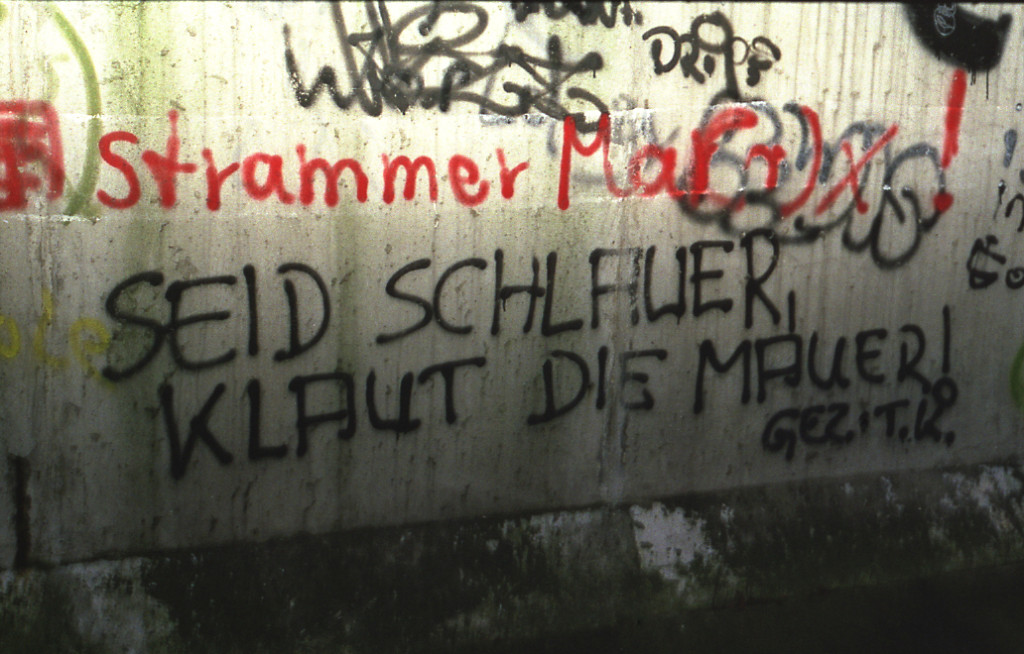 Strammer Mar(r)x!
SEID SCHLAUER,
KLAUT DIE MAUER!
GEZ. T.K.